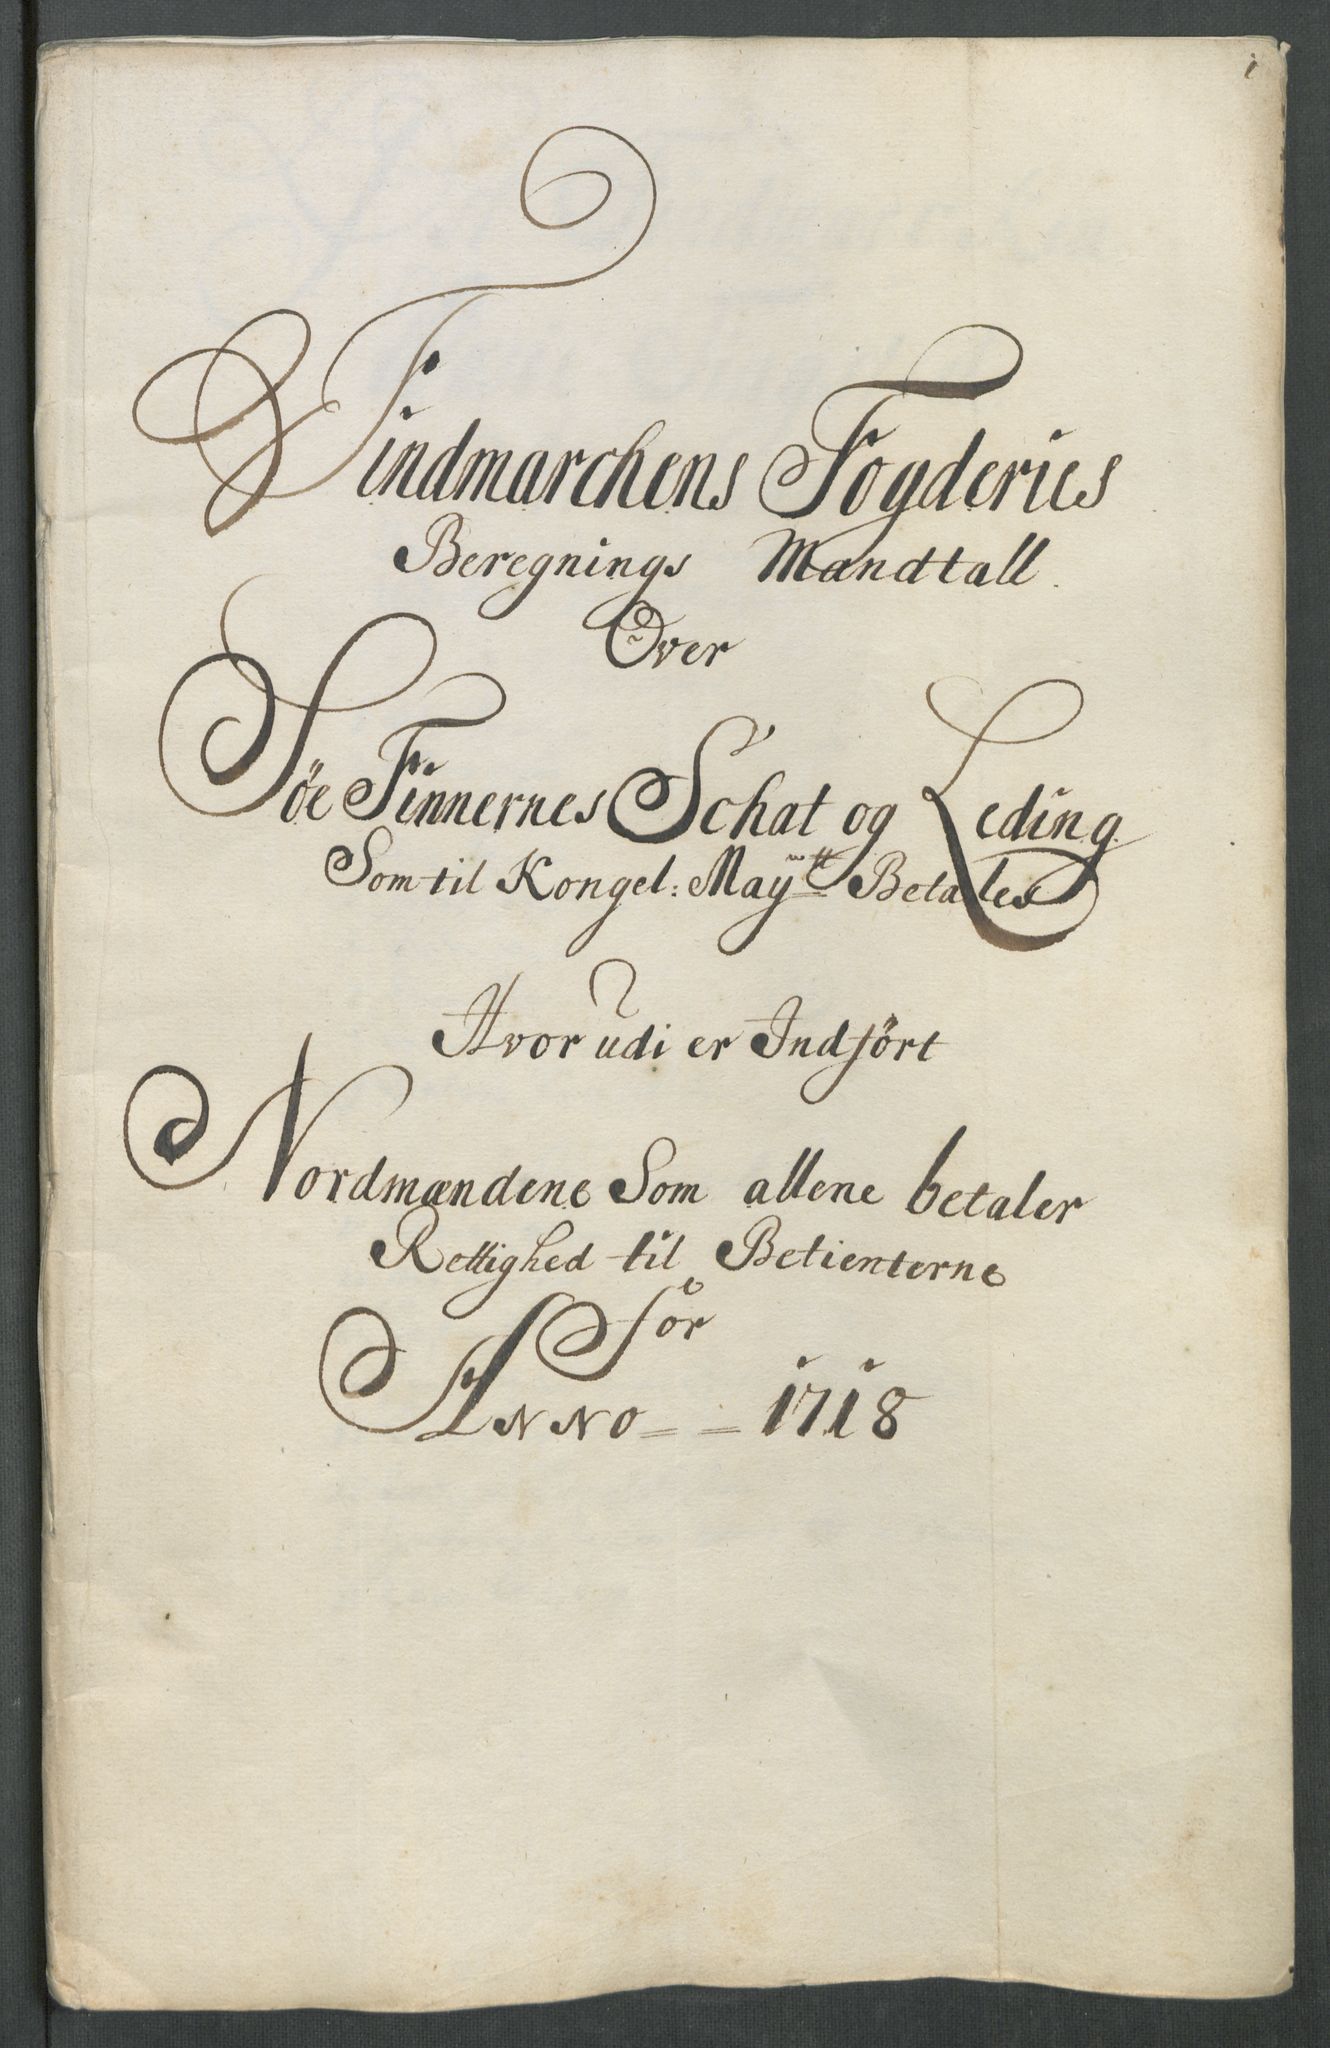 1
Findmarchens Fogderies
Beregnings Mandtall
Over
Søe Finnernes Schat og Leding
Som til Kongel: Maytt Betales
Hvor udi er Indført
Nordmændene Som allene betaler
Rettighed til Betienterne
for
ANNO == 1718